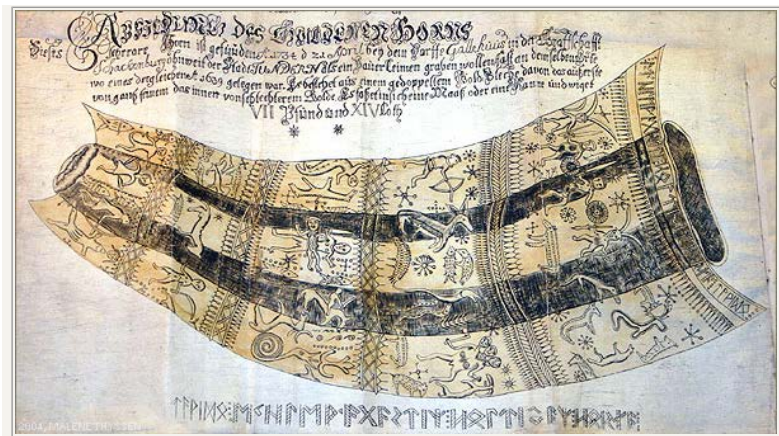 ABBILDUNG DES GÜLDENEN HORNS
Dieses Horn ist gefunden A 1734 d 21 April bey dem Dorffe Gallehuus in der Graffschafft
Schackenburg ohnweit der Stadt TUNDERN Als ein Bauer Leimen graben wollen fast an demselben Orte
wo eines dergleichen A 1639 gelegen war. Es bestehet aus einem gedoppeltem Gold Bleche davon das äuserste
von gantz feinem das innen von schlechterem Golde. eine Maaß oder eine Kanne und wieget
VII Pfund und XIV Loth
ᛏᚨᚹᛁᛞᛟ⁝ᛖᚲᚺᛚᛖᚹᚨᚷᚨᛊᛏᛁᛉ⁝ᚺᛟᛚᛏᛁᛃᚨᛉ⁝ᚺᛟᚱᚾᚨ
2004, MALENE THYSSEN